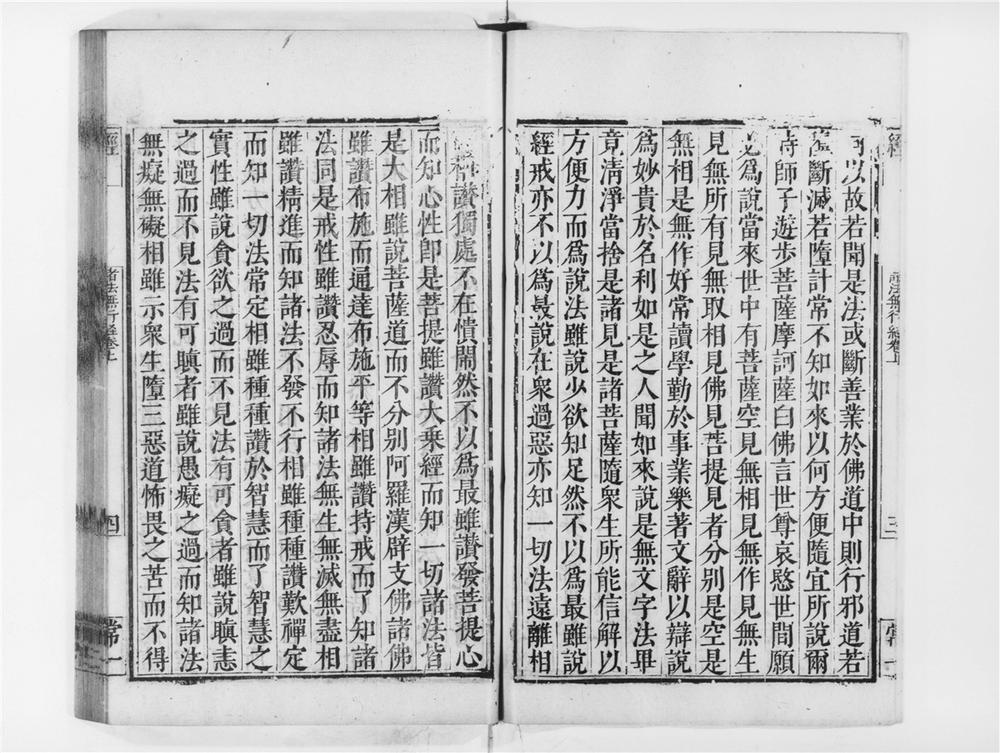 以故若聞是法或斷善業於佛道中則行邪道若
斷滅若墮計常不知如來以何方便隨宜所說爾
時師子遊步菩薩摩訶薩白佛言世尊哀愍世間願
為說當來世中有菩薩空見無相見無作見無生
見無所有見無取相見佛見菩提見者分別是空是
無相是無作好常讀學勤於事業樂著文辭以辯說
為妙貴於名利如是之人聞如來說是無文字法畢
竟清淨當捨是諸見是諸菩薩隨衆生所能信解以
方便力而為說法雖說少欲知足然不以為最雖說
經戒亦不以為最說在衆過惡亦知一切法遠離相
讚獨處不在憒閙然不以為最雖讚發菩提心
而知心性即是菩提雖讚大乗經而知一切諸法皆
是大相雖說菩薩道而不分别阿羅漢辟支佛諸佛
雖讚布施而通達布施平等相雖讚持戒而了知諸
法同是戒性雖讚忍辱而知諸法無生無滅無盡相
雖讚精進而知諸法不發不行相雖種種讚歎禪定
而知一切法常定相雖種種讚於智慧而了智慧之
實性雖說貪欲之過而不見法有可貪者雖說瞋恚
之過而不見法有可瞋者雖說愚癡之過而知諸法
無癡無礙相雖示衆生墮三惡道怖畏之苦而不得
經
諸法無行經卷上
三
常一
經
諸法無行經卷上
四
常一